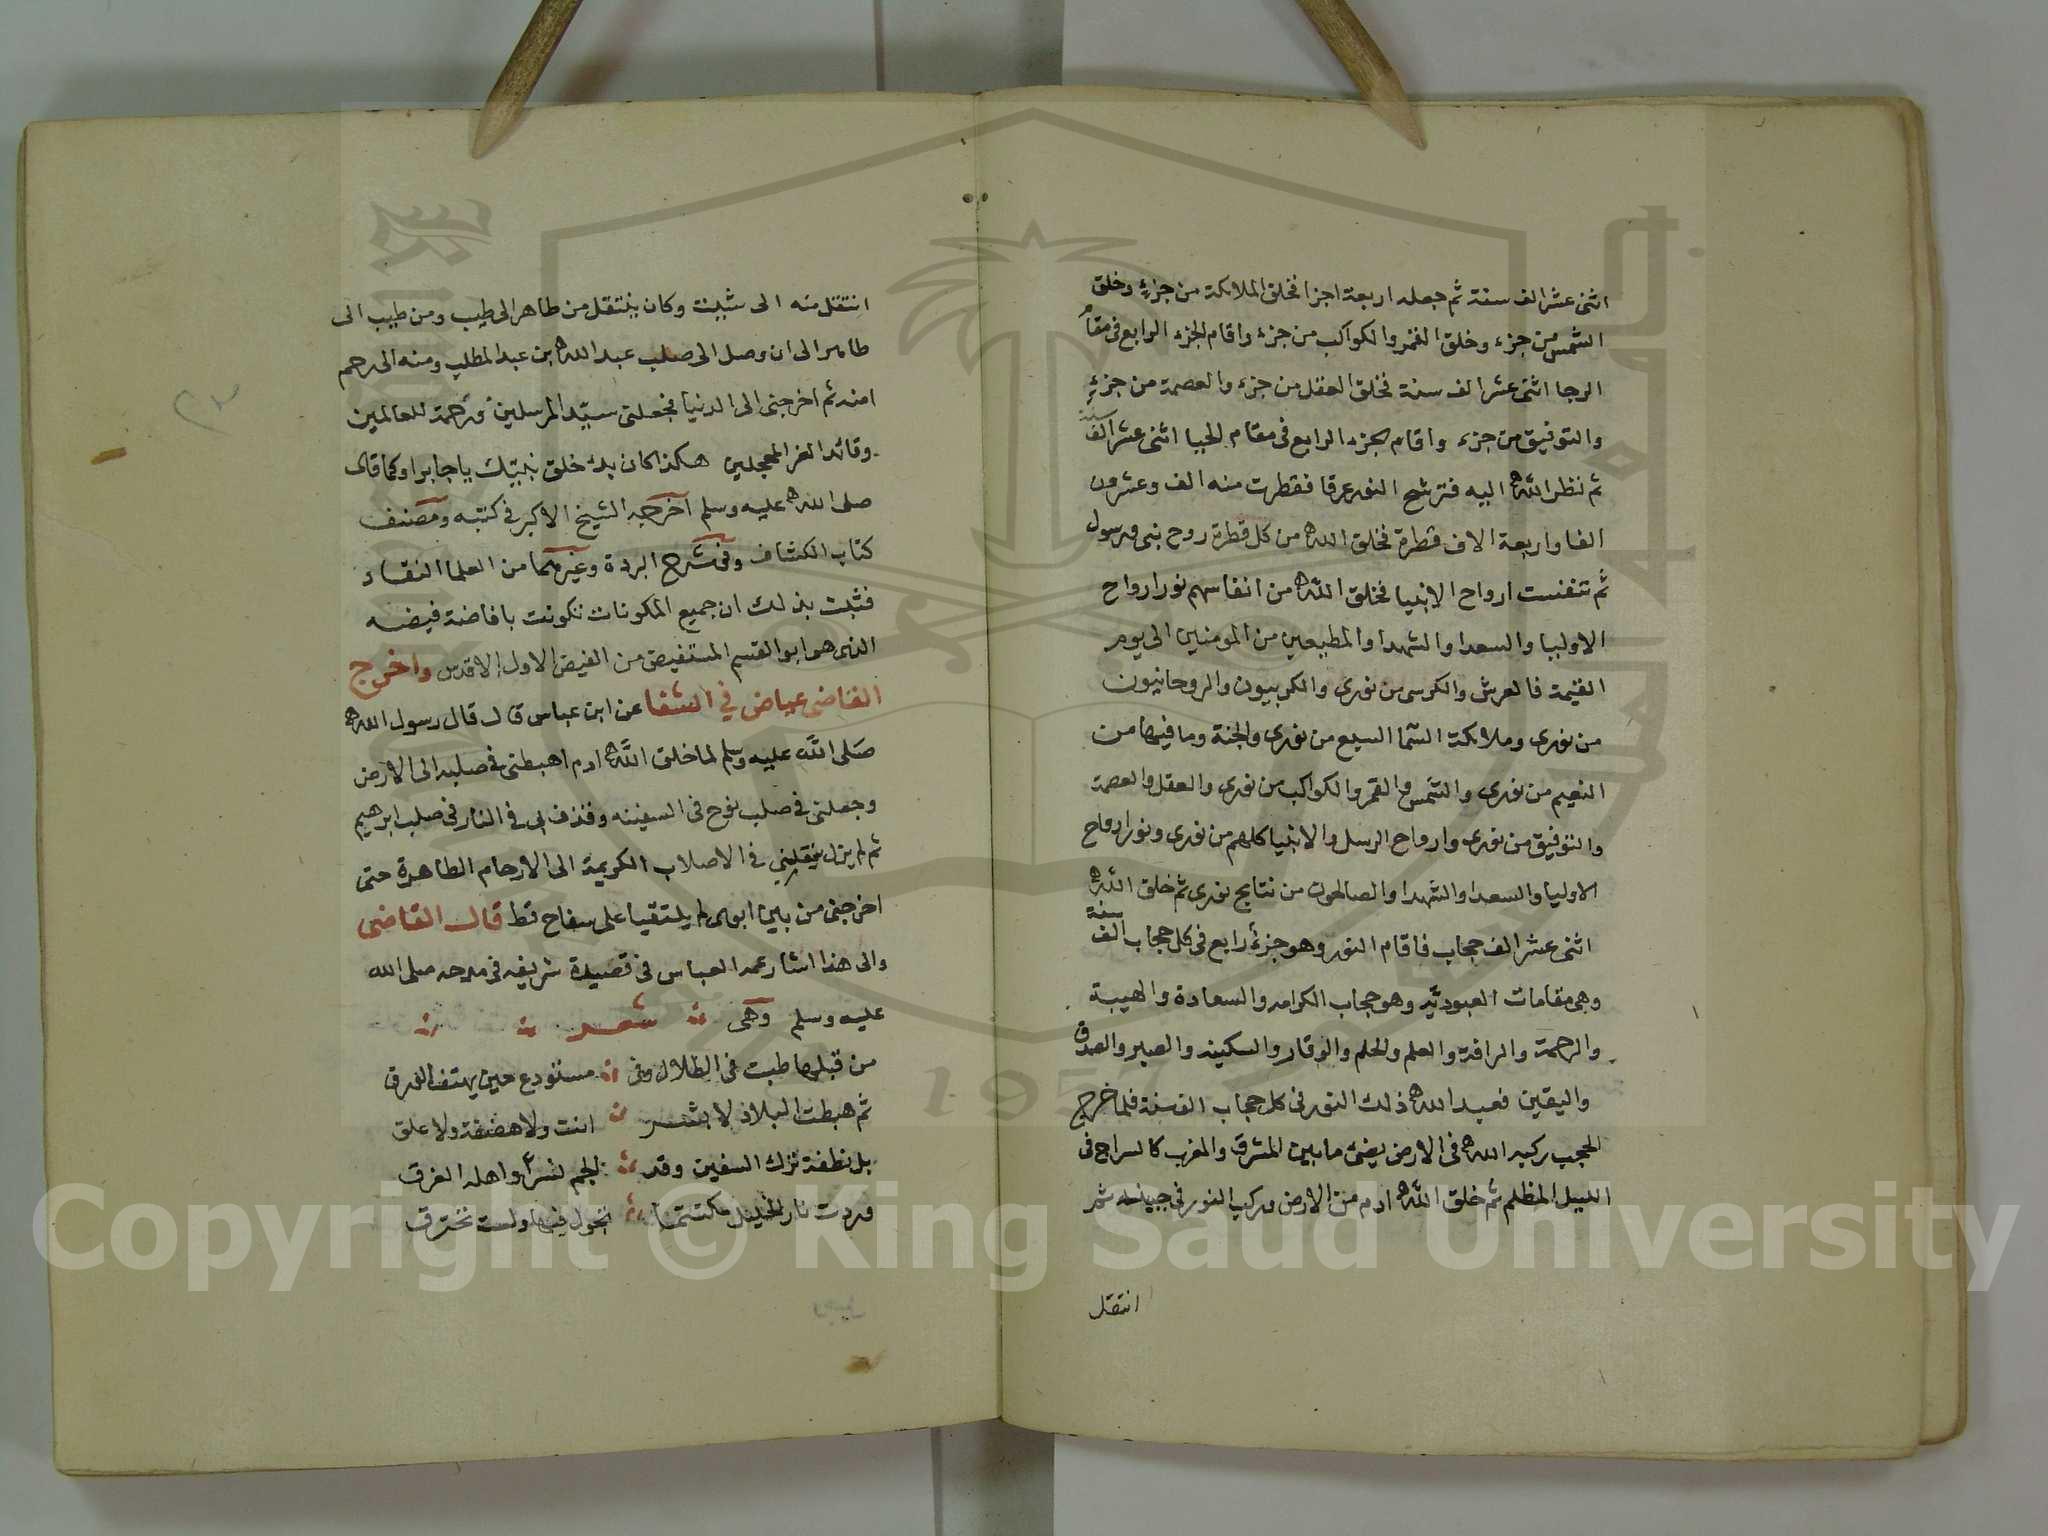 اثنى عشر الف سنة ثم جعله اربعة اجزا فخلق الملائكة من جزءٍ وخلق
الشمس من جزء وخلق القمر والكواكب من جزء واقام الجزء الرابع فى مقام
الرجا اثنى عشر الف سنة فخلق العقل من جزء والعصمة من جزءٍ
والتوفيق من جزء واقام الجزء الرابع فى مقام الحيا اثنى عشر الف سنة
ثم نظر الله اليه فترشح النور عرقا فقطرت منه الف وعشرون
الفا واربعة الاف قطرة فخلق الله من كل قطرة روح نبى ورسول
ثم تنفست ارواح الانبيا فخلق الله من انفاسهم نور ارواح
الاوليا والسعدا والشهدا والمطيعين من المومنين الى يوم
القيمة فالعرش والكرسى من نورى والكربيون والروحانيون
من نورى وملائكة السما السبع من نورى والجنة وما فيها من
النعيم من نورى والشمس والقمر والكواكب من نورى والعقل والعصمة
والتوفيق من نورى وارواح الرسل والانبيا كلهم من نورى ونور ارواح
الاوليا والسعدا والشهدا والصالحون من نتايج نورى ثم خلق الله
اثنى عشر الف حجاب فاقام النور وهو جزءٌ رابع فى كل حجاب الف سنة
وهى مقامات العبودية وهو حجاب الكرامه والسعادة والهيبة
والرحمة والرافة والعلم والحلم والوقار والسكينه والصبر والصدق
واليقين فعبد الله ذلك النور فى كل حجاب الف سنة فلما خرج
الحجب ركبه الله فى الارض يضئ ما بين المشرق والمغرب كالسراج فى
الليل المظلم ثم خلق الله ادم من الارض وركب النور فى جبينه ثم
انتقل
انتقل منه الى شيث وكان ينتقل من طاهر الى طيب ومن طيب الى
طاهر الى ان وصل الى صلب عبد الله بن عبد المطلب ومنه الى رحم
امنه ثم اخرجنى الى الدنيا فجعلنى سيّد المرسلين ورحمة للعالمين
وقائد الغر المحجلين هكذا كان بدء خلق نبيّك يا جابر او كما قال
صلى الله عليه وسلم آخرجه الشيخ الاكبر فى كتبه ومصنف
كتاب الكشاف وفى شرح البردة وغيرهما من العلما النقاد
فثبت بذلك ان جميع المكونات تكونت بافاضة فيضه
الذى هو ابو القسم المستفيض من الفيض الاول الاقدس واخرج
القاضى عياض في الشفا عن ابن عباس قال قال رسول الله
صَلى الله عليه وسلم لما خلق الله ادم اهبطنى فى صلبه الى الارض
وجعلنى فى صلب نوح فى السفينه وقذف بى فى النار فى صلب ابرهيم
ثم لم يزل ينقلني فى الاصلاب الكريمة الى الارحام الطاهرة حتى
اخرجنى من بين ابوى لم يلتقيا على سفاح قط قال القاضى
والى هذا اشار عمه العباس فى قصيدة شريفه فى مدحه صلى الله
عليه وسلم وهى شعر
من قبلها طبت فى الظلال وفى مستودع حين يهتف الورق
ثم هبطت البلاد لا بشر انت ولا مضغة ولا علق
بل نطفة تركب السفين وقد الجم نسرا واهله الغرق
وردت نار الخليل مكتتما تجول فيها ولست تحترق
٢٣
Copyright © King Saud University
1957